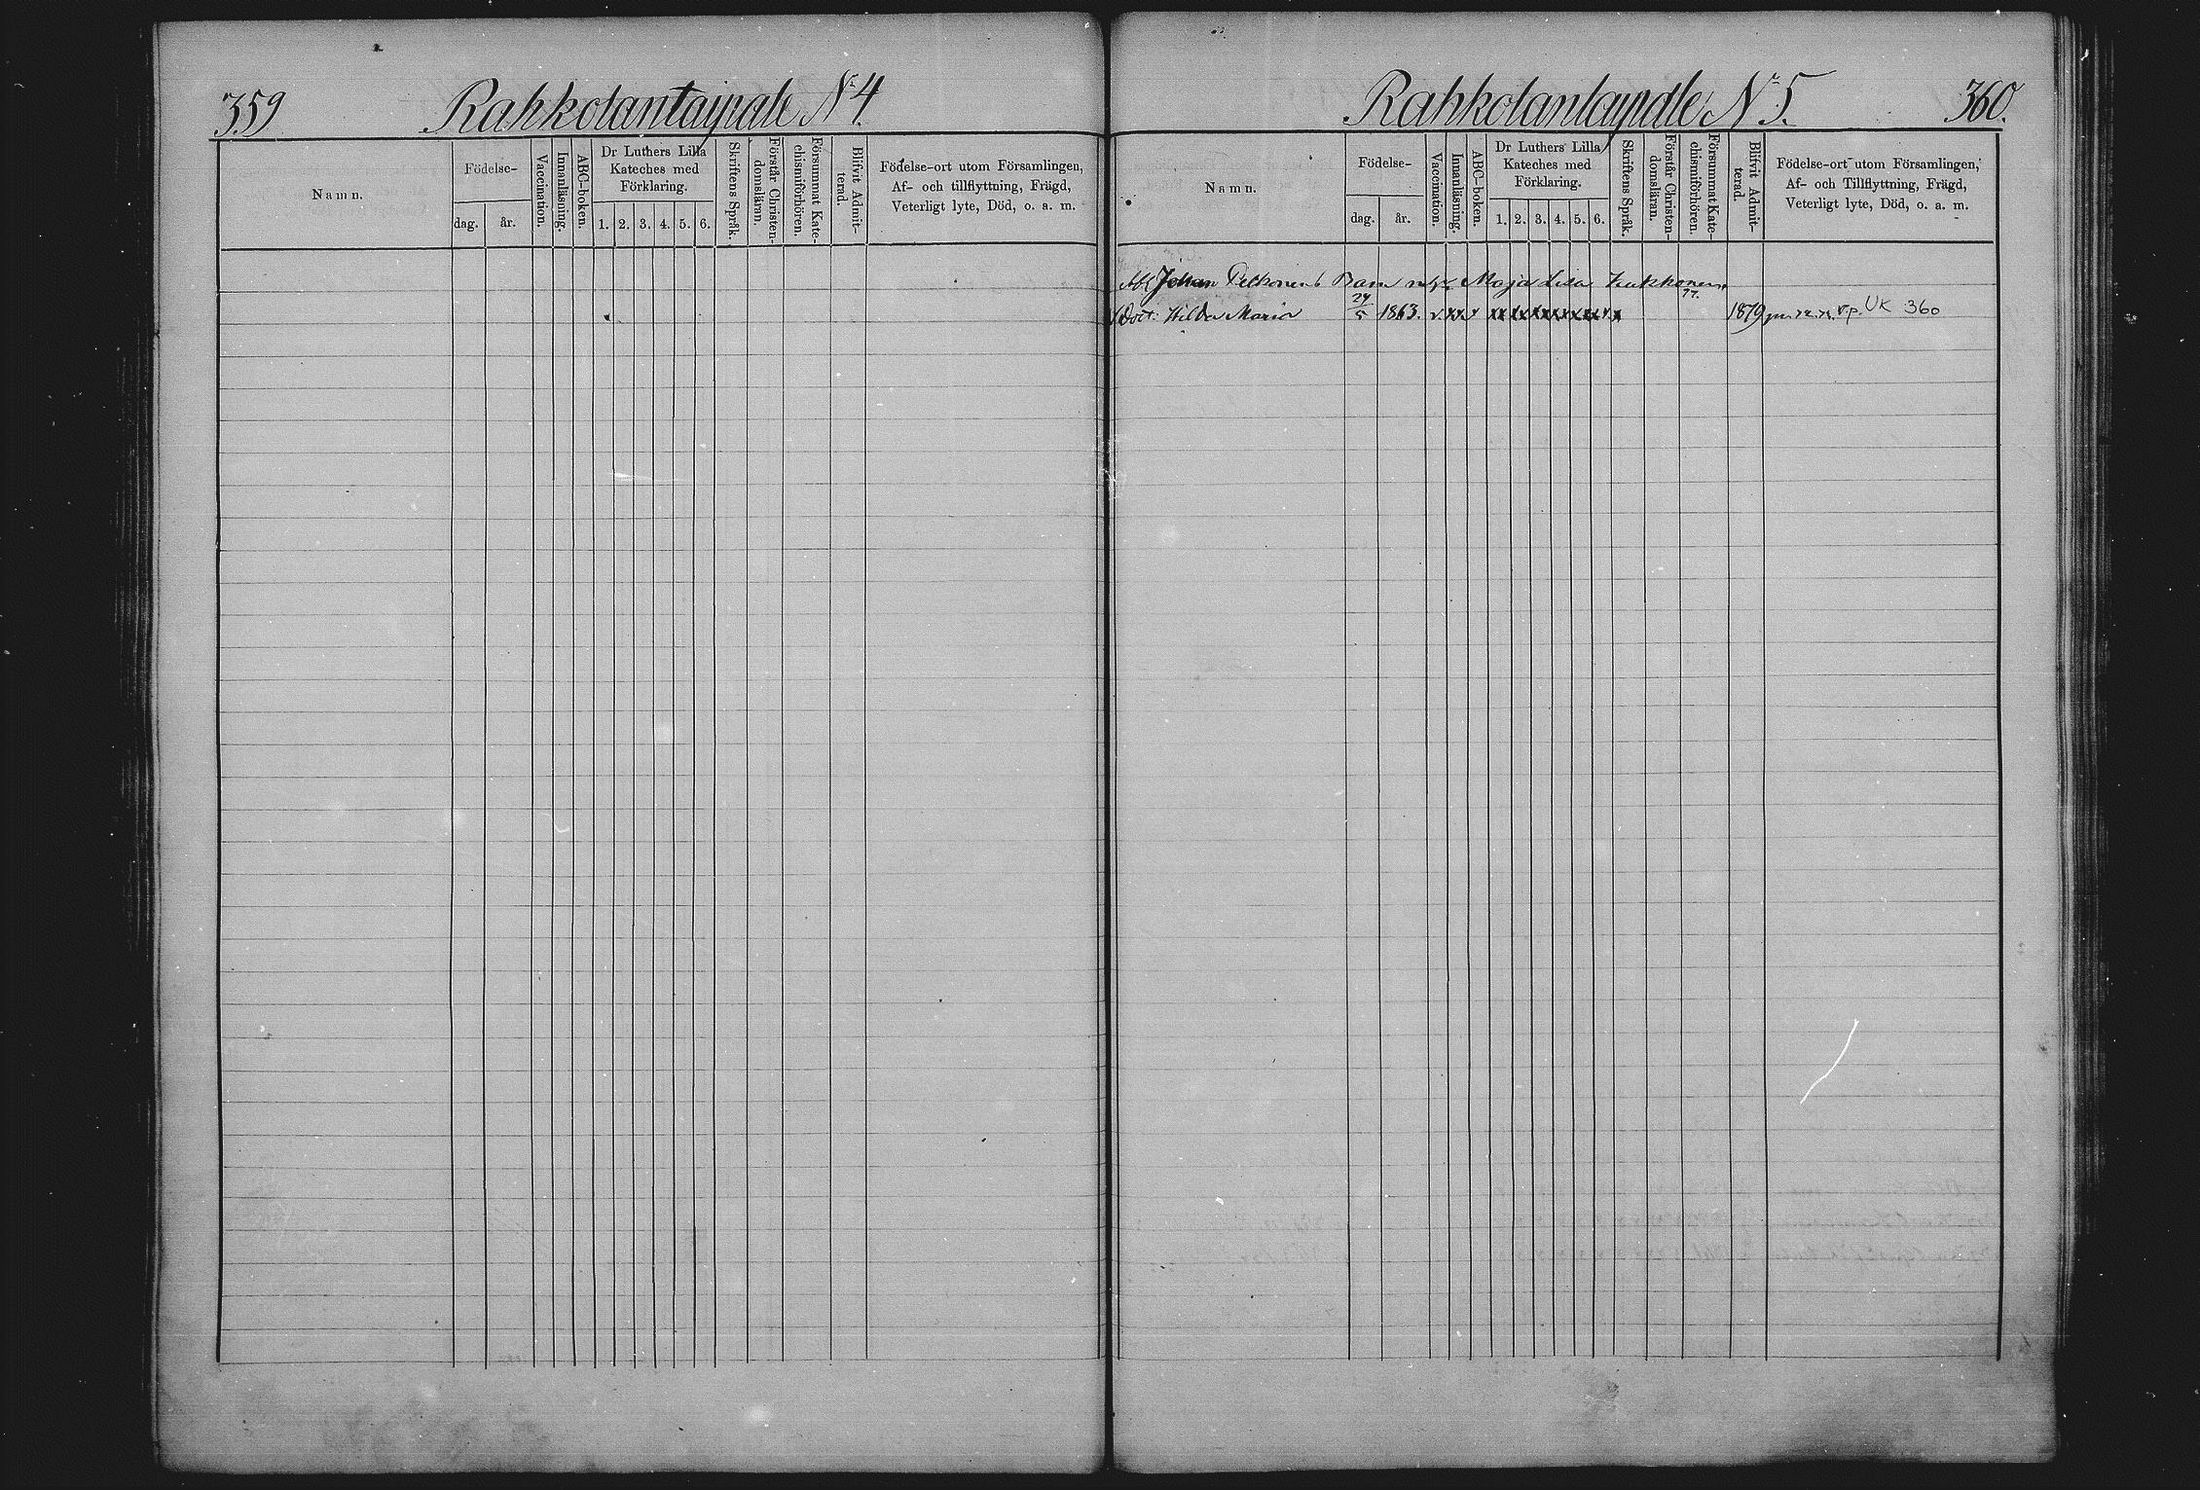 359 Rahkolantaipale No 4.
Namn.
Födelse-
dag. år.
Vaccination.
Innanläsning.
ABC-boken.
Dr Luthers Lilla
Kateches med
Förklaring.
1. 2. 3. 4. 5. 6.
Skriftens Språk.
Förstår Christen-
domsläran.
Försummat Kate-
chismiförhören.
Blifvit Admit-
terad.
Födelse-ort utom Församlingen,
Af- och tillflyttning, Frägd,
Veterligt lyte, Död, o. a. m.
Rahkolantaipale No 5. 360.
Namn.
Födelse-
dag. år.
Vaccination.
Innanläsning.
ABC-boken.
Dr Luthers Lilla
Kateches med
Förklaring.
1. 2. 3. 4. 5. 6.
Skriftens Språk.
Förstår Christen-
domsläran.
Försummat Kate-
chismiförhören.
Blifvit Admit-
terad.
Födelse-ort utom Församlingen,
Af- och Tillflyttning, Frägd,
Veterligt lyte, Död, o. a. m.
Johan Pelkonens Barn Maja Lisa
Dott: Hilda Maria 24/5 1863. 1879 UK 360